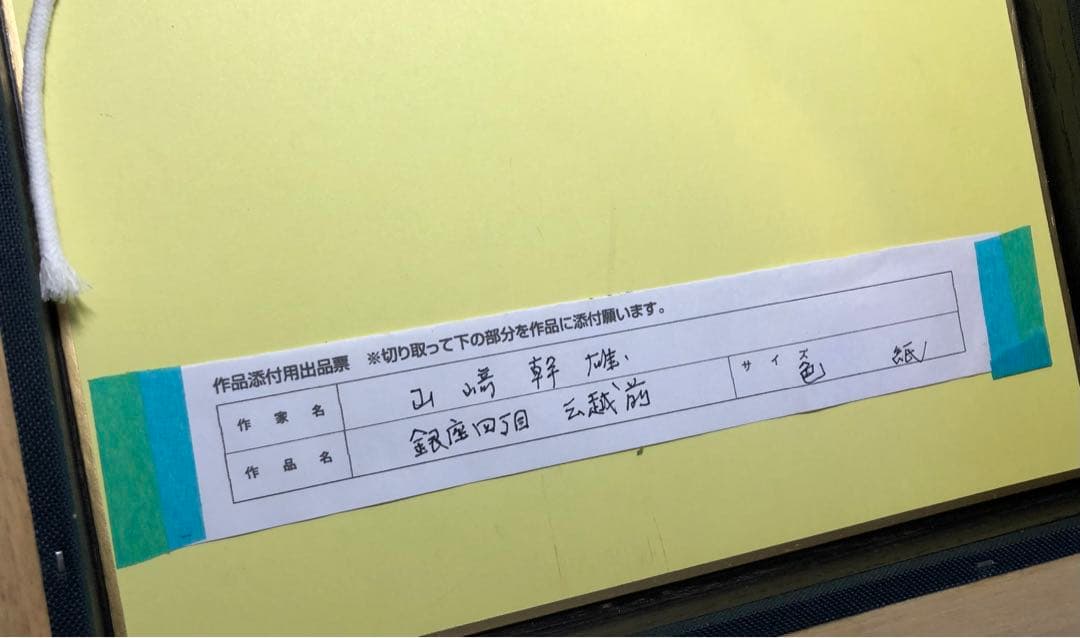 作品添付用出品票 ※切り取って下の部分を作品に添付願います。
作家名 山崎幹雄
作品名 銀座四丁目 三越前 サイズ 色紙